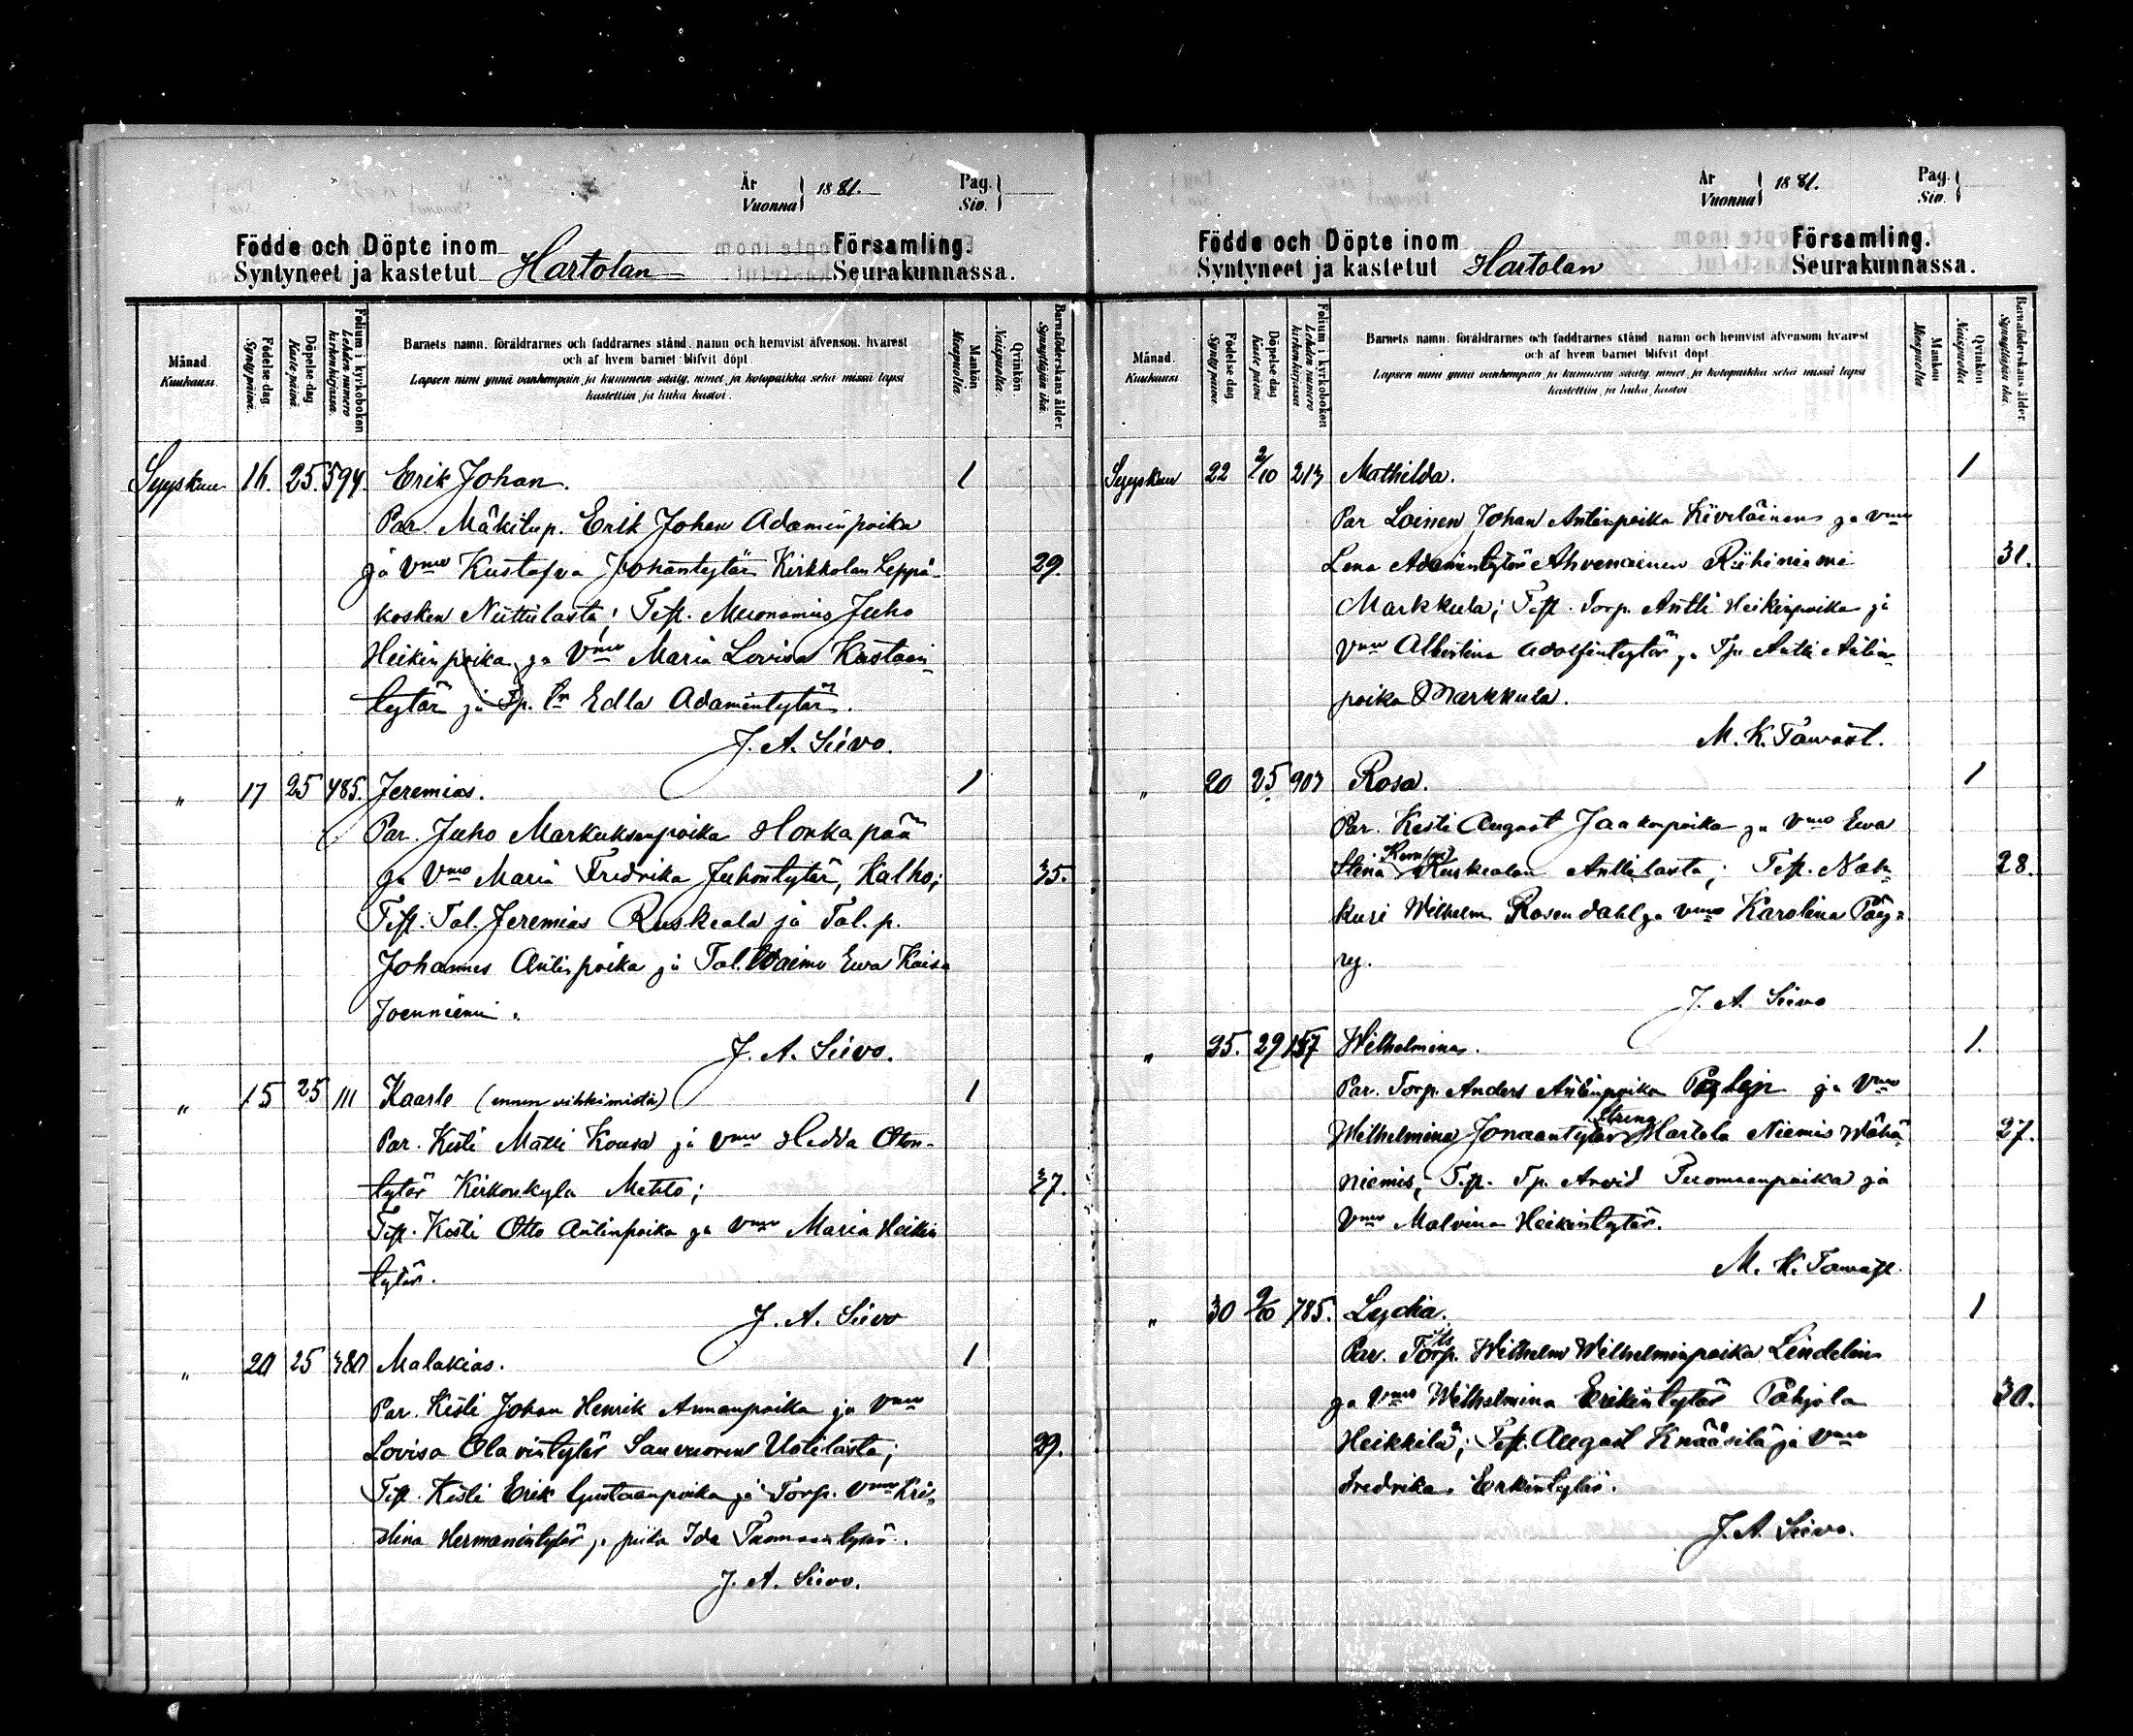 År
Vuonna 1881.
Pag.
Siv.
Födde och Döpte inom Församling.
Syntyneet ja kastetut Hartolan Seurakunnassa.
Månad.
Kuukausi.
Födelse-dag.
Syntypäivä.
Döpelse-dag.
Kaste päivä.
Folium i kyrkoboken
Lehden numero kirkonkirjassa.
Barnets namn, föräldrarnes och faddrarnes stånd, namn och hemvist äfvensom, hvarest
och af hvem barnet blifvit döpt.
Lapsen nimi ynnä vanhempain ja kummein sääty, nimet ja kotopaikka sekä missä lapsi
kastettiin ja kuka kastoi.
Mankön.
Miespuolia.
Qvinkön.
Naispuolia.
Barnaföderskans ålder.
Synnyttäjän ikä.
Syyskuu 16. 25. 594. Erik Johan. 1
Par. Mäkitup. Erik Johan Adaminpoika
ja Vmo Kustafva Johantytär Kirkkolan Leppä- 29.
kosken Niittilästä; Test. Muonamies Juho
Heikinpoika ja Vmo Maria Lovisa Kustaan
tytär ja Tp. tr Edla Adamintytär.
J. A. Siivo.
" 17 25 485. Jeremias. 1
Par. Juho Markuksenpoika Honkapää
ja Vmo Maria Fredrika Juhontytär, Kalho; 35.
Test. Tal. Jeremias Ruskeala ja Tal. p.
Johannes Antinpoika ja Tal. Waimo Ewa Kaisa
Joenniemi.
J. A. Siivo.
" 15 25 111 Kaarle (ennen vihkimistä) 1
Par. Kesti Matti Kousa ja Vmo Hedda Oton-
tytär Kirkonkylä Mehto; 37.
Test. Kesti Otto Antinpoika ja Vmo Maria Heikin
tytär.
J. A. Siivo
" 20 25 380 Malakias. 1
Par. Kesti Johan Henrik Annanpoika ja Vmo
Lovisa Olavintytär Sanvuoren Uotilasta; 29.
Test. Kesti Erik Gustaanpoika ja Torp. Vmo Kris
stina Hermanintytär ja piika Ida Tuomaantytär.
J. A. Siivo.
År
Vuonna 1881.
Pag.
Siv.
Födde och Döpte inom Församling.
Syntyneet ja kastetut Hartolan Seurakunnassa.
Månad.
Kuukausi
Födelse dag
Synty päivä.
Döpelse-dag
Kaste päivä
Folium i kyrkoboken
Lehden numero kirkonkirjassa
Barnets namn, föräldrarnes och faddrarnes stånd, namn och hemvist äfvensom hvarest
och af hvem barnet blifvit döpt
Lapsen nimi ynnä vanhempain ja kummein sääty, nimet ja kotopaikka sekä missä lapsi
kastettiin ja kuka kastoi
Mankön
Miespuolia
Qvinkön
Naispuolia
Barnaföderskans ålder
Synnyttäjän ikä.
Syyskuu 22 2/10 213 Mathilda. 1
Par Loinen Johan Antinpoika Kiveläinen ja Vmo
Lena Adamintytär Ahvenainen Riihiniemi 31.
Markkula; Test. Torp. Antti Heikinpoika ja
Vmo Albertina Adolfintytär ja Tp. Antti Antin
poika Markkula.
M. K. Tawast.
" 20 25 903 Rosa. 1
Par. Kesti August Jaakonpoika ja Vmo Ewa
Stina Ruskealan Anttilasta; Test. Nah- 28.
kuri Wilhelm Rosendahl ja Vmo Karolina Päy=
ry.
J. A. Siivo
" 25. 29 157 Wilhelmina. 1.
Par. Torp. Anders Antinpoika ja Vmo
Stiina
Wilhelmina Jonaantytär Hartola Niemis Wähä 27.
niemis, Test. Tp. Arvid Tuomaanpoika ja
Vmo Malvina Heikintytär.
M. K. Tawast.
" 30 9/10 785. Lydia. 1
Par. Torp. Wilhelm Wilhelminpoika Lindelin
ja Vmo Wilhelmina Erikintytär Pohjola 30.
Heikkilä; Test. August Knääsilä ja Vmo
Fredrika Erkintytär.
J. A. Siivo.